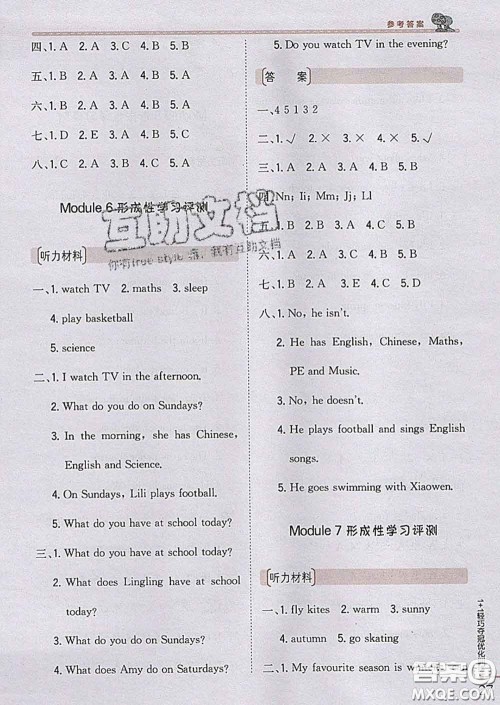 参考答案
四、1. A  2. A  3. A  4. B  5. B
五、1. B  2. A  3. A  4. B  5. A
六、1. B  2. A  3. B  4. A  5. A
七、1. D  2. E  3. A  4. B  5. C
八、1. C  2. A  3. B  4. C  5. A
Module 6 形成性学习评测
听力材料
一、1. watch TV  2. maths  3. sleep
4. play basketball
5. science
二、1. I watch TV in the afternoon.
2. What do you do on Sundays?
3. In the morning, she has Chinese,
English and Science.
4. On Sundays, Lili plays football.
5. What do you have at school today?
三、1. What do you have at school today?
2. What does Lingling have at school
today?
3. What do you do on Sundays?
4. What does Amy do on Saturdays?
5. Do you watch TV in the evening?
答 案
一、4 5 1 3 2
二、1. √  2. ×  3. ×  4. ×  5. √
三、1. B  2. A  3. B  4. A  5. A
四、Nn; Ii; Mm; Jj; Ll
五、1. B  2. A  3. B  4. B  5. A
六、1. B  2. A  3. A  4. B  5. B
七、1. D  2. C  3. E  4. A  5. B
八、1. No, he isn't.
2. He has English, Chinese, Maths,
PE and Music.
3. No, he doesn't.
4. He plays football and sings English
songs.
5. He goes swimming with Xiaowen.
Module 7 形成性学习评测
听力材料
一、1. fly kites  2. warm  3. sunny
4. autumn  5. go skating
二、1. My favourite season is
1+1轻巧夺冠优化
互助文档
答案圈
MXQE.COM